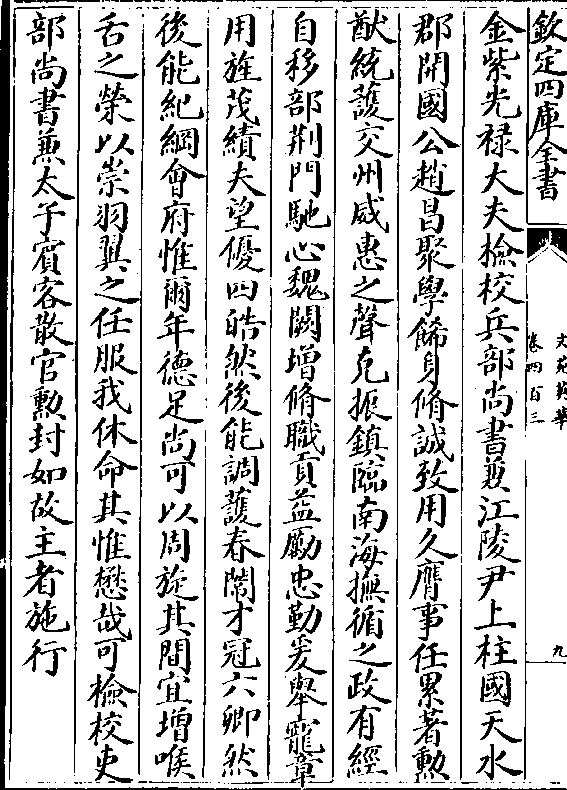 欽定四庫全書
文苑英華
卷四百三
九
金紫光禄大夫檢校兵部尚書兼江陵尹上柱國天水
郡開國公趙昌聚學餙身脩誠致用久膺事任累著勲
猷統護交州威惠之聲克振鎮臨南海撫循之政有經
自移部荆門馳心魏闕增脩職貢益勵忠勤爰舉寵章
用旌茂績夫望優四皓然後能調護春闈才冠六卿然
後能紀綱會府惟爾年德足尚可以周旋其間宜增喉
舌之榮以崇羽翼之任服我休命其惟懋哉可檢校吏
部尚書兼太子賓客散官勲封如故主者施行